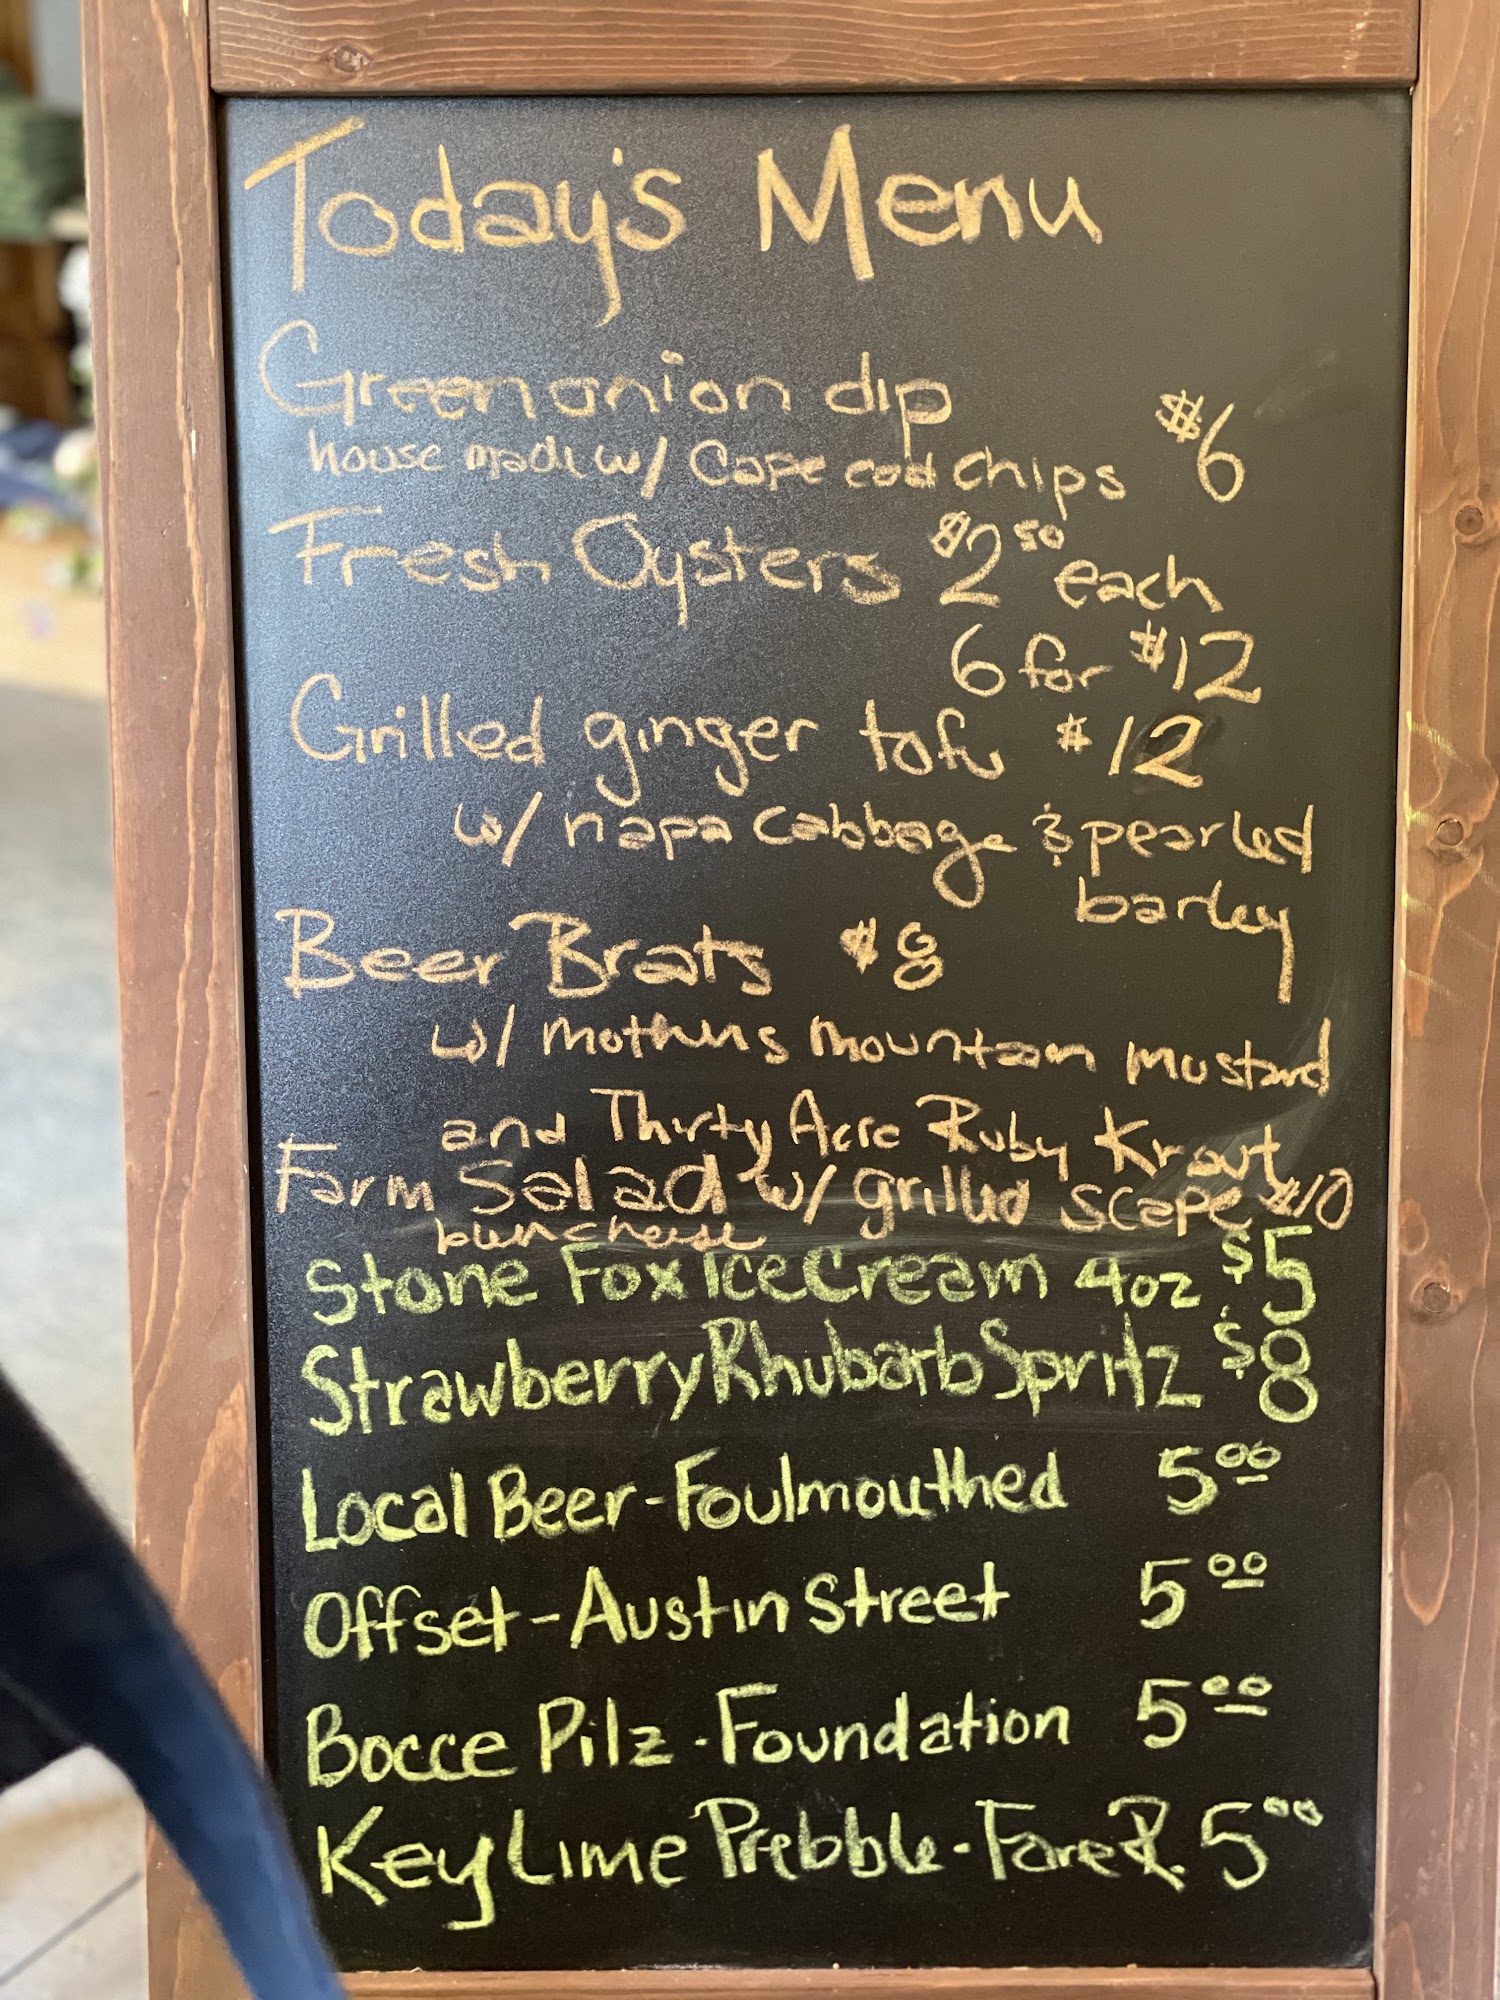 Today's Menu
Green onion dip
house made w/ Cape cod chips $6
Fresh Oysters $2 50 each
6 for $12
Grilled ginger tofu $12
w/ napa cabbage & pearled
barley
Beer Brats $8
w/ mothers mountain mustard
and Thirty Acre Ruby Kraut
Farm Salad w/ grilled scape $10
cheese
Stone Fox Ice Cream 4oz $5
Strawberry Rhubarb Spritz $8
Local Beer - Foulmouthed 5 00
Offset - Austin Street 5 00
Bocce Pilz - Foundation 5 00
Key Lime Prebble - Fore R. 5 00